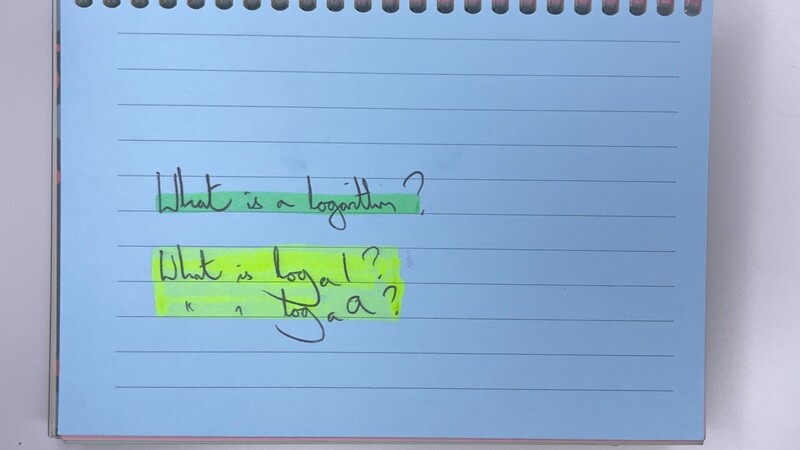 What is a logarithm?
What is logₐ1?
" " logₐa?